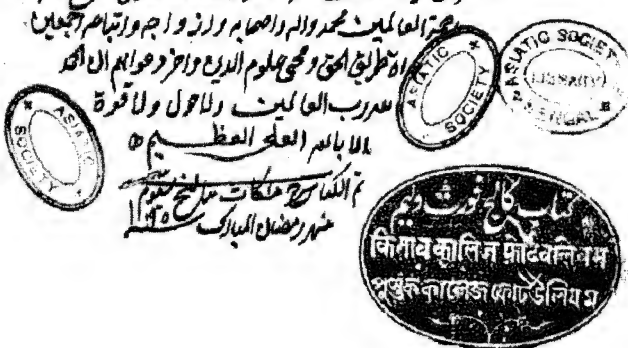 رحمة العالمين محمد واله واصحابه وازواجه واتباعه اجمعين
طريق الحق ومحيى علوم الدين واخر دعواهم ان الحمد
لله رب العالمين ولا حول ولا قوة
الا بالله العلى العظيم
تم الكتاب بتاريخ
شهر رمضان المبارك
ASIATIC SOCIETY
ASIATIC SOCIETY
ASIATIC SOCIETY
LIBRARY
BENGAL
كتاب كالج فورت وليم
किताब कालिज फोर्टवलियम
পুস্তক কালেজ ফোর্ট উলিয়ম